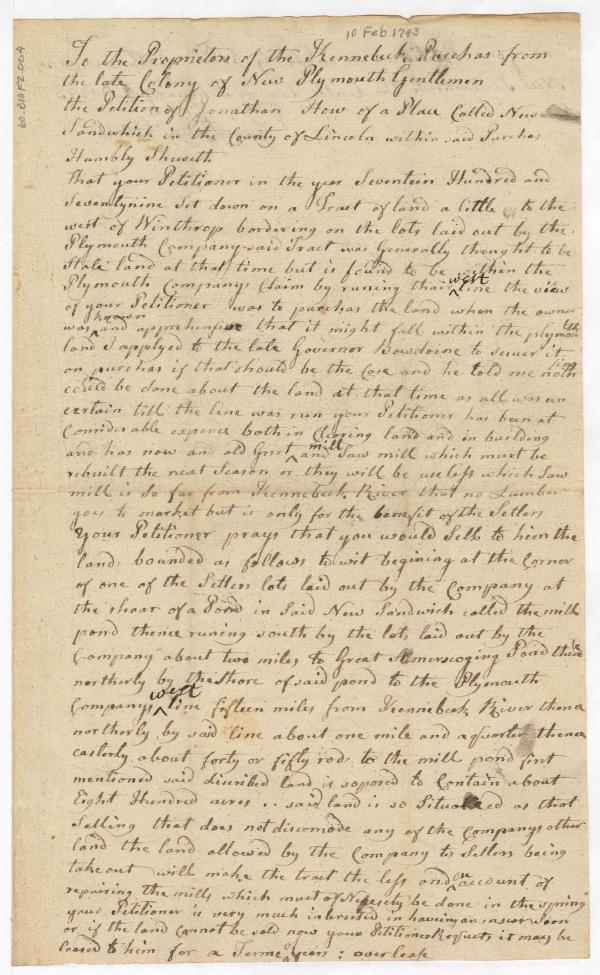 10 Feb 1793
60-810F2004
To the Proprietors of the Kennebeck Purchas from
the late Colony of New Plymouth Gentlemen
the Petition of Jonathan How of a Place Called New
Sandwhich in the County of Lincoln within said Purchas
Humbly Sheweth
That your Petitioner in the year Seventein Hundred and
Seventynine Set down on a Tract of land a little to the
west of Winthrop bordering on the lots laid out by the
Plymouth Company said Tract was Generally thought to be
State land at that time but is found to be within the
Plymouth Companys Claim by runing thair west line the view
of your Petitioner was to purchas the land when the owner
was known and apprehensive that it might fall within the plymouth
land I applyed to the late Governor Bowdoine to secuer it
on purchas if that should be the Case and he told me nothing
could be done about the land at that time as all was un
certain till the line was run your Petitioner has been at
Considerable expence both in Clearing land and in building
and has now an old Grist mill and Saw mill which must be
rebuilt the next Season or they will be useless which Saw
mill is so far from Kennebeck River that no Lumber
goes to market but is only for the benefit of the Setlers
Your Petitioner prays that you would Sell to him the
land bounded as follows to wit begining at the Corner
of one of the Setlers lots laid out by the Company at
the shoar of a Pond in Said New Sandwich called the mill
pond thence runing south by the lots laid out by the
Company about two miles to Great Amerscoging Pond thence
northerly by the Shore of said pond to the Plymouth
Companys west line fifteen miles from Kennebeck River thence
northerly by said line about one mile and a quarter thence
easterly about forty or fifty rods to the mill pond first
mentioned said discribed land is soposed to Contain about
Eight Hundred acres .. said land is so Situated as that
Selling that does not discomode any of the Companys other
land the land allowed by the Company to Setlers being
take out will make the tract the less and on account of
repairing the mills which must of Necesety be done in the spring
your Petitioner is very much intrusted in haveing an answer Soon
or if the land Cannot be sold now your Petitioner Requests it may be
leased to him for a Terme Years : over leafe